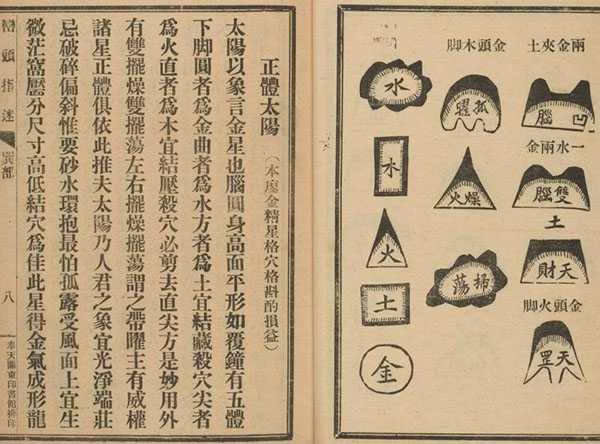 兩金夾土
凹腦
一水兩金
雙腦
土
天財
金頭火脚
天罡
金頭木脚
孤曜
燥火
掃蕩
水
木
火
土
金
正體太陽（本廖金精星格穴格斟酌損益）
太陽以象言金星也腦圓身高面平形如覆鐘有五體
下脚圓者爲金曲者爲水方者爲土宜結藏殺穴尖者
爲火直者爲木宜結壓殺穴必剪去直尖方是妙用外
有雙擺燥雙擺蕩左右擺燥擺蕩謂之帶曜主有威權
諸星正體俱依此推夫太陽乃人君之象宜光淨端莊
忌破碎偏斜惟要砂水環抱最怕孤露受風面上宜生
微茫窩壓分尺寸高低結穴爲佳此星得金氣成形龍
頭指迷
巽部
八
奉天關東印書館排印